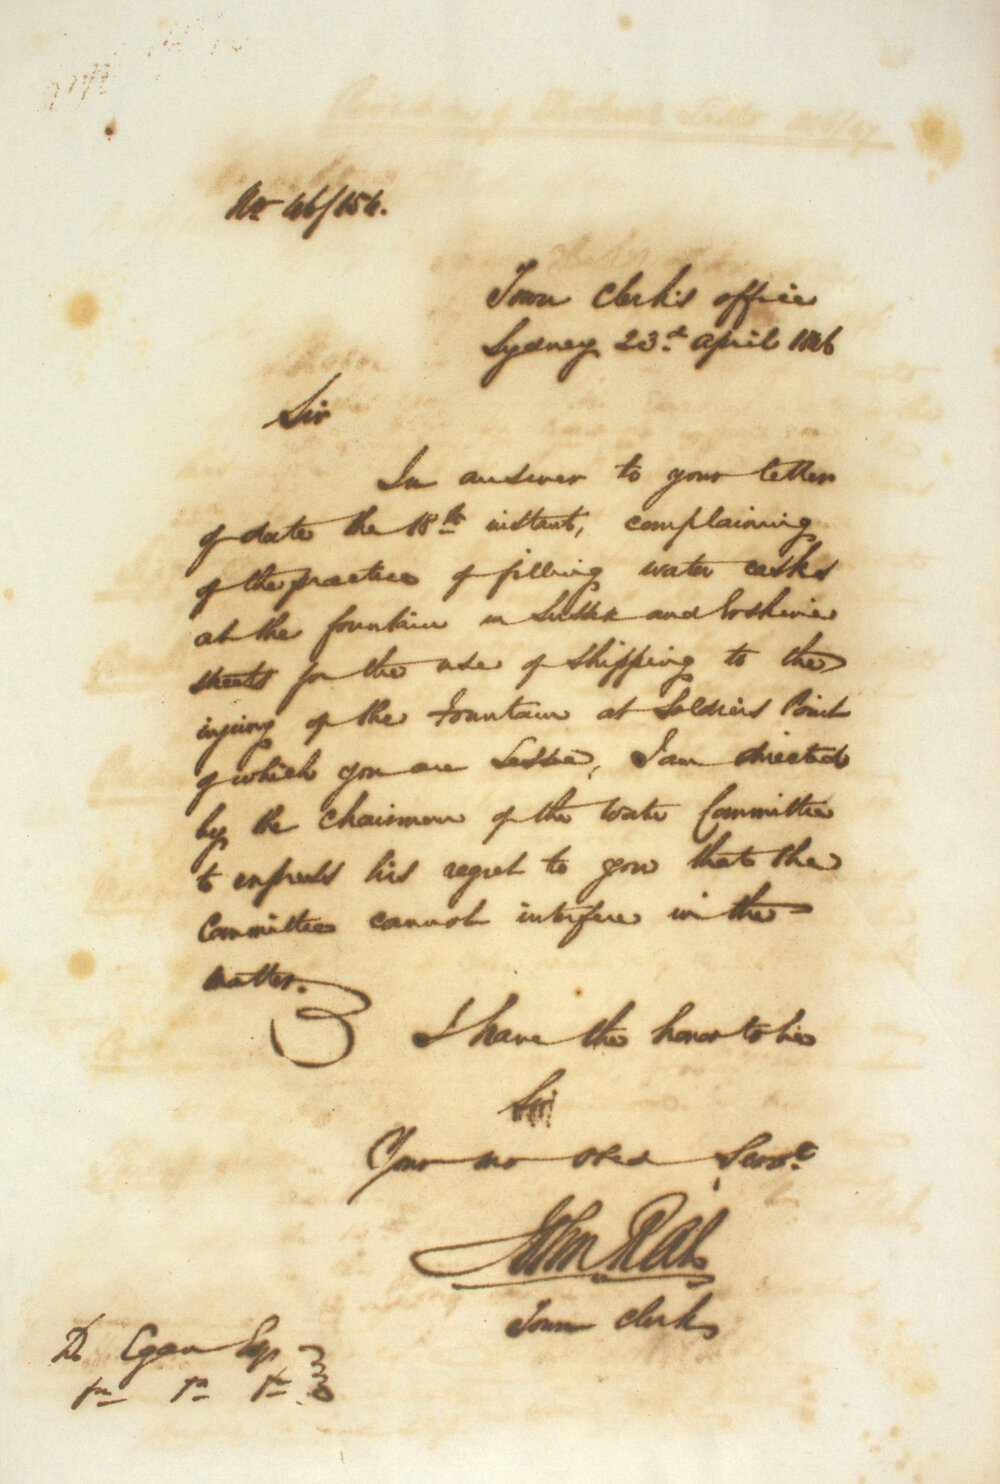 No 46/154.
Town Clerk's office
Sydney 23d. april 1846
Sir
In answer to your letter
of date the 18th instant, complaining
of the practice of filling water casks
at the fountain in Sussex and Erskine
streets for the use of shipping to the
injury of the Fountain at Soldiers Point
of which you are Lessee, I am directed
by the Chairman of the Water Committee
to express his regret to you that the
Committee cannot interfere in the
matter.
I have the honor to be
Sir
Your mo obed Servt.
John Rae
Town Clerk
Egan Esqr